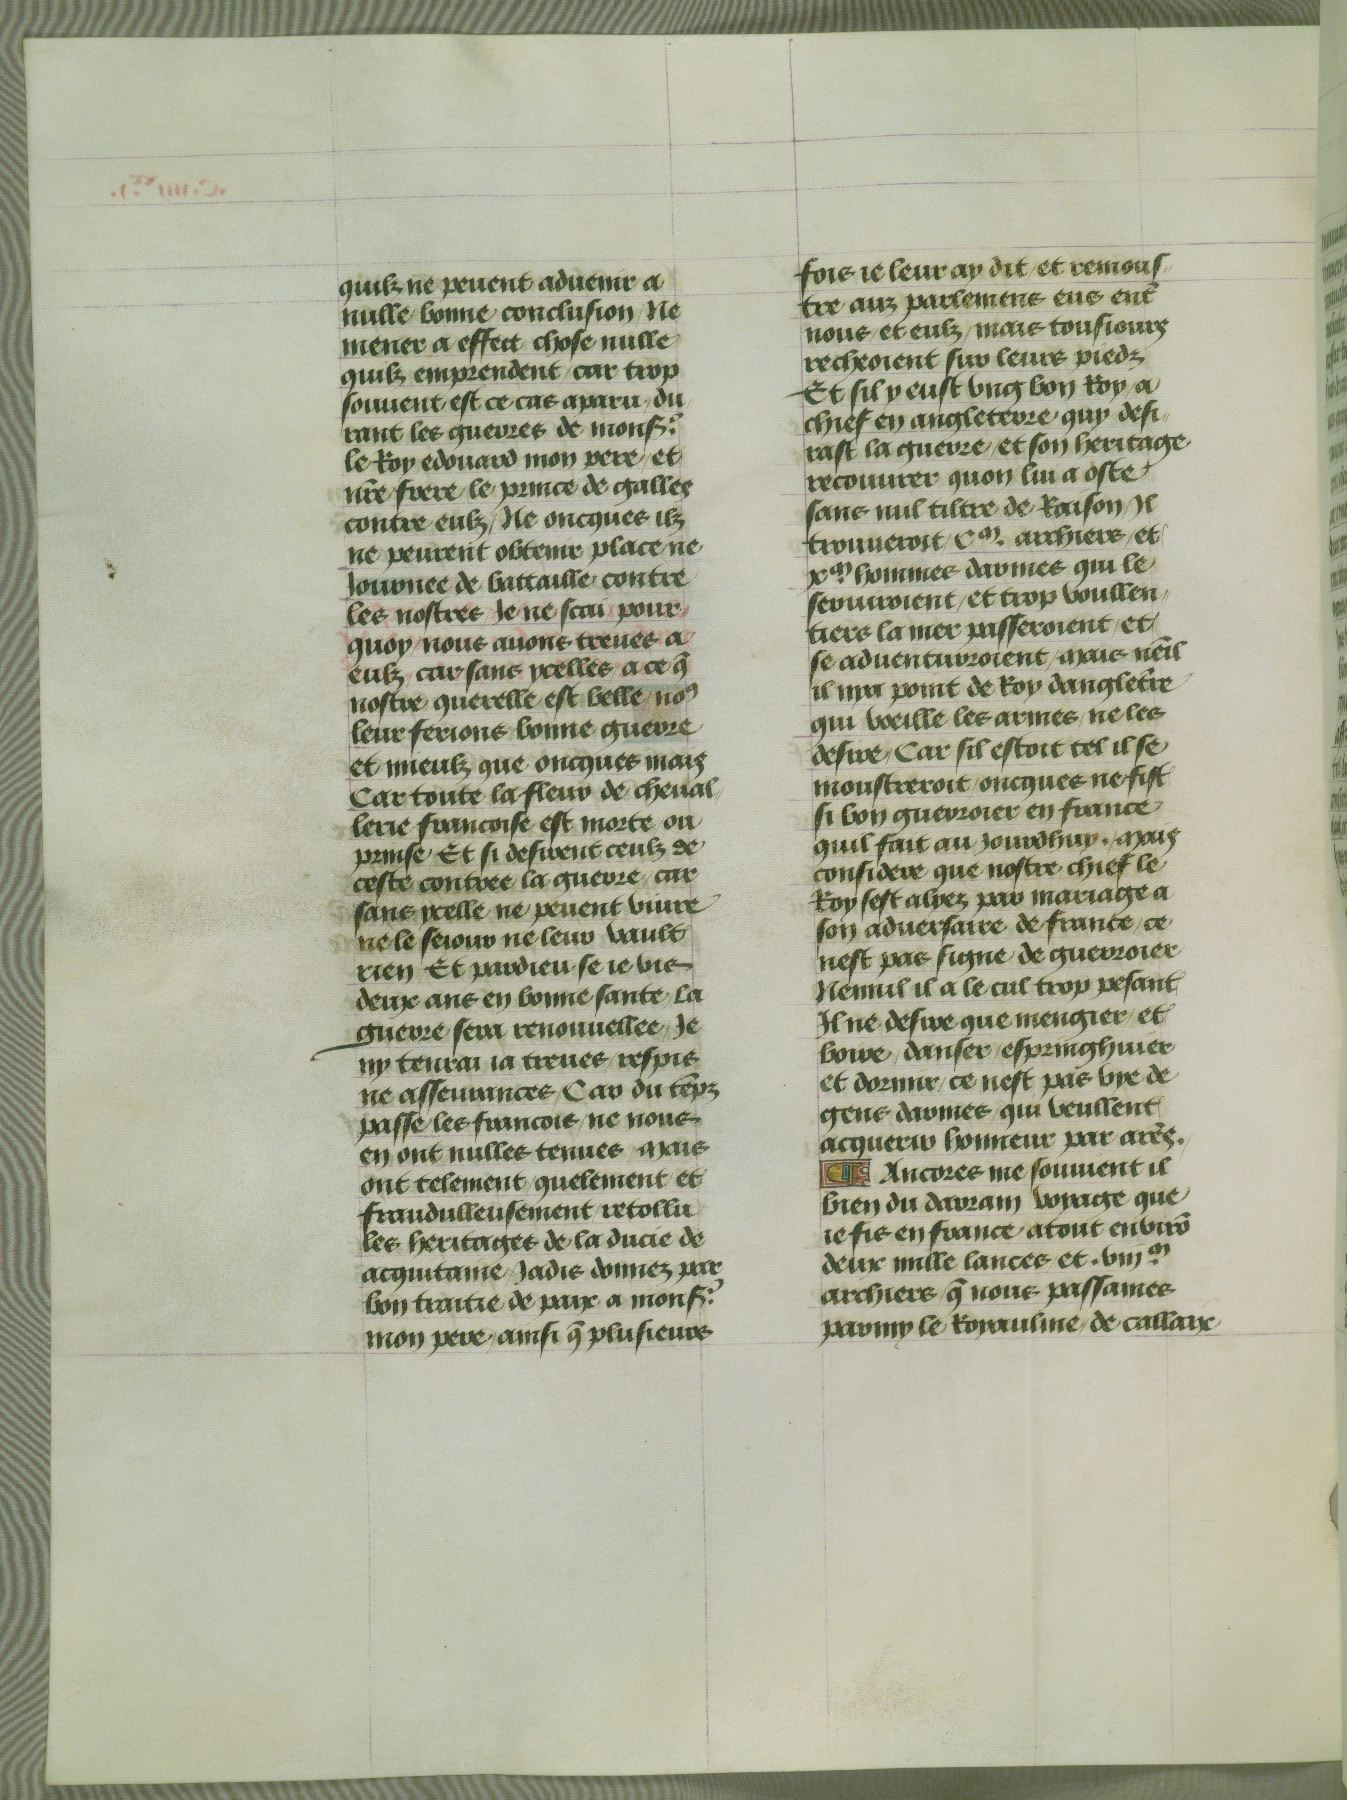 quilz ne peuent aduenir a
nulle bonne conclusion / Ne
mener a effect chose nulle
quilz emprendent / car trop
souuent est ce cas aparu / du
rant les guerres de monsr̃.
le Roy edouard mon pere / et
nr̃e frere le prince de galles
contre eulz / Ne oncques ilz
ne peurent obtenir place ne
Journee de battaille contre
les nostres / Je ne scai pour-
quoy / nous auons treues a
eulz / car sans ycelles / a ce q̃
nostre querelle est belle / no⁹
leur ferions bonne guerre
et mieulz que oncques mais
Car toute la fleur de cheual-
lerie francoise est morte ou
prinse Et si desirent ceulz de
ceste contree la guerre / car
sans ycelle ne peuent viure
ne le seiour ne leur vault
rien Et pardieu se ie vis
deux ans en bonne sante / la
guerre sera renouuellee / Je
ny tenrai ia treues / respis
ne asseurances / Car du tẽpz
passe les francois ne nous
en ont nulles tenues / Mais
ont telement quelement et
fraudulleusement retollu
les heritages de la ducie de
acquitaine Jadis donnez par
bon traitie de paix a monsr̃.
mon pere / ainsi q̃ plusieurs
fois ie leur ay dit / et remons-
tre auz parlemens eus entr̃
nous et eulz / mais tousiours
recheoient sur leurs piedz
Et sil y eust vng bon Roy / a
chief en angleterre quy desi-
rast la guerre / et son heritage
recouurer quon lui a oste
sans nul tiltre de Raison / Il
trouueroit / Cᵐ. archiers / et
xᵐ hommes darmes qui le
seruiroient / et trop voullen-
tiers la mer passeroient / et
se aduentureroient / Mais nẽil
il nya point de Roy dangletr̃e
qui vueille les armes / ne les
desire / Car sil estoit tel il se
monstreroit / oncques ne fist
si bon guerroier en france
quil fait au Jourdhuy. Mais
considere que nostre chief le
Roy sest alyez par mariage a
son aduersaire de france / ce
nest pas signe de guerroier
Nennil il a le cul trop pesant
Il ne desire que mengier / et
boire / danser / espringhuier
et dormir / ce nest pas vye de
gens darmes / qui veullent
acquerir honneur par arm̃s.
Ancores me souuient il
bien du darrain voyage que
ie fis en france atout enuirõ
deux mille lances et .viijᵐ
archiers q̃ nous passames
parmy le Royaulme / de callaix